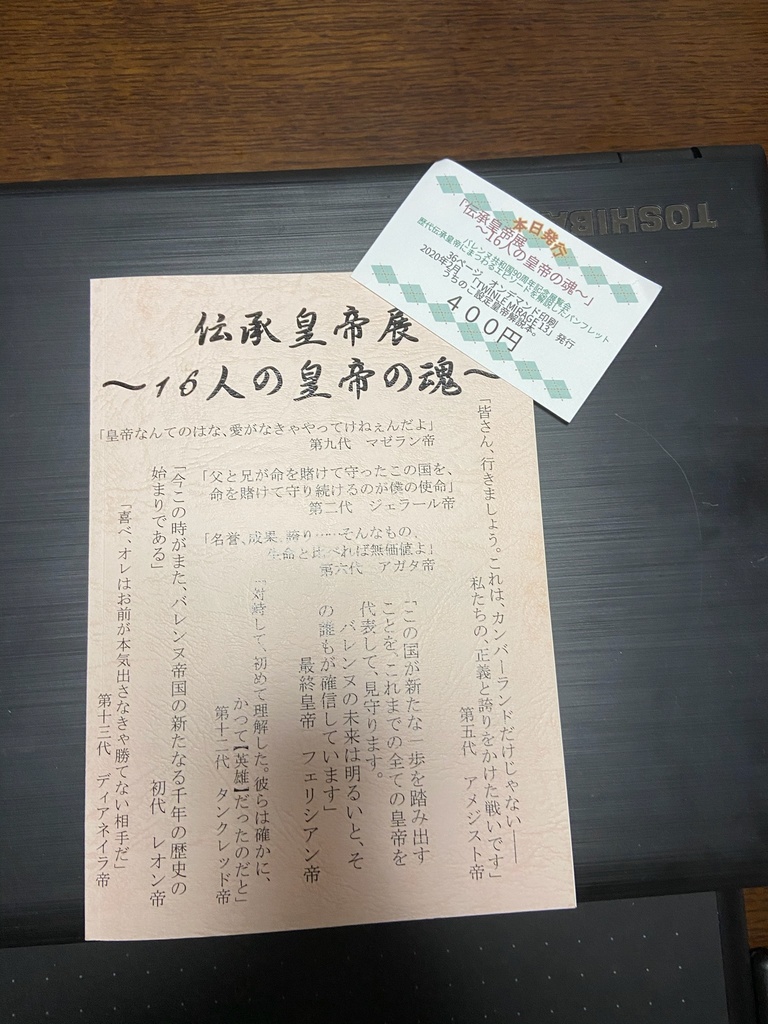 TOSHIBA
本日発行
「伝承皇帝展
～16人の皇帝の魂～」
バレンヌ共和国90周年記念展覧会
歴代伝承皇帝にまつわるエピソードを解説したパンフレット
36ページ オンデマンド印刷
2020年2月 「TWINLE MIRAGE 13」発行
うちのこ設定皇帝解説本。
４００円
伝承皇帝展
～16人の皇帝の魂～
「皇帝なんてのはな、愛がなきゃやってけねぇんだよ」
第九代 マゼラン帝
「父と兄が命を賭けて守ったこの国を、
命を賭けて守り続けるのが僕の使命」
第二代 ジェラール帝
「名誉、成果、誇り……そんなもの、
生命と比べれば無価値よ」
第六代 アガタ帝
「皆さん、行きましょう。これは、カンバーランドだけじゃない――
私たちの、正義と誇りをかけた戦いです」
第五代 アメジスト帝
「この国が新たな一歩を踏み出す
ことを、これまでの全ての皇帝を
代表して、見守ります。
バレンヌの未来は明るいと、そ
の誰もが確信しています」
最終皇帝 フェリシアン帝
「対峙して、初めて理解した。彼らは確かに、
かつて【英雄】だったのだと」
第十二代 タンクレッド帝
「今この時がまた、バレンヌ帝国の新たなる千年の歴史の
始まりである」
初代 レオン帝
「喜べ、オレはお前が本気出さなきゃ勝てない相手だ」
第十三代 ディアネイラ帝